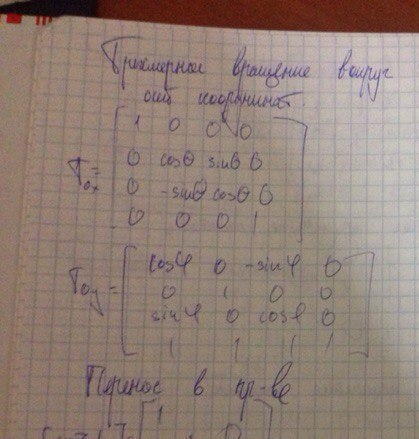 Трехмерное вращение вокруг
осей координат.
1 0 0 0
0 cosθ sinθ 0
Tox =
0 -sinθ cosθ 0
0 0 0 1
cosφ 0 -sinφ 0
Toy =
0 1 0 0
sinφ 0 cosφ 0
1 1 1 1
Перенос в пр-ве
1
0